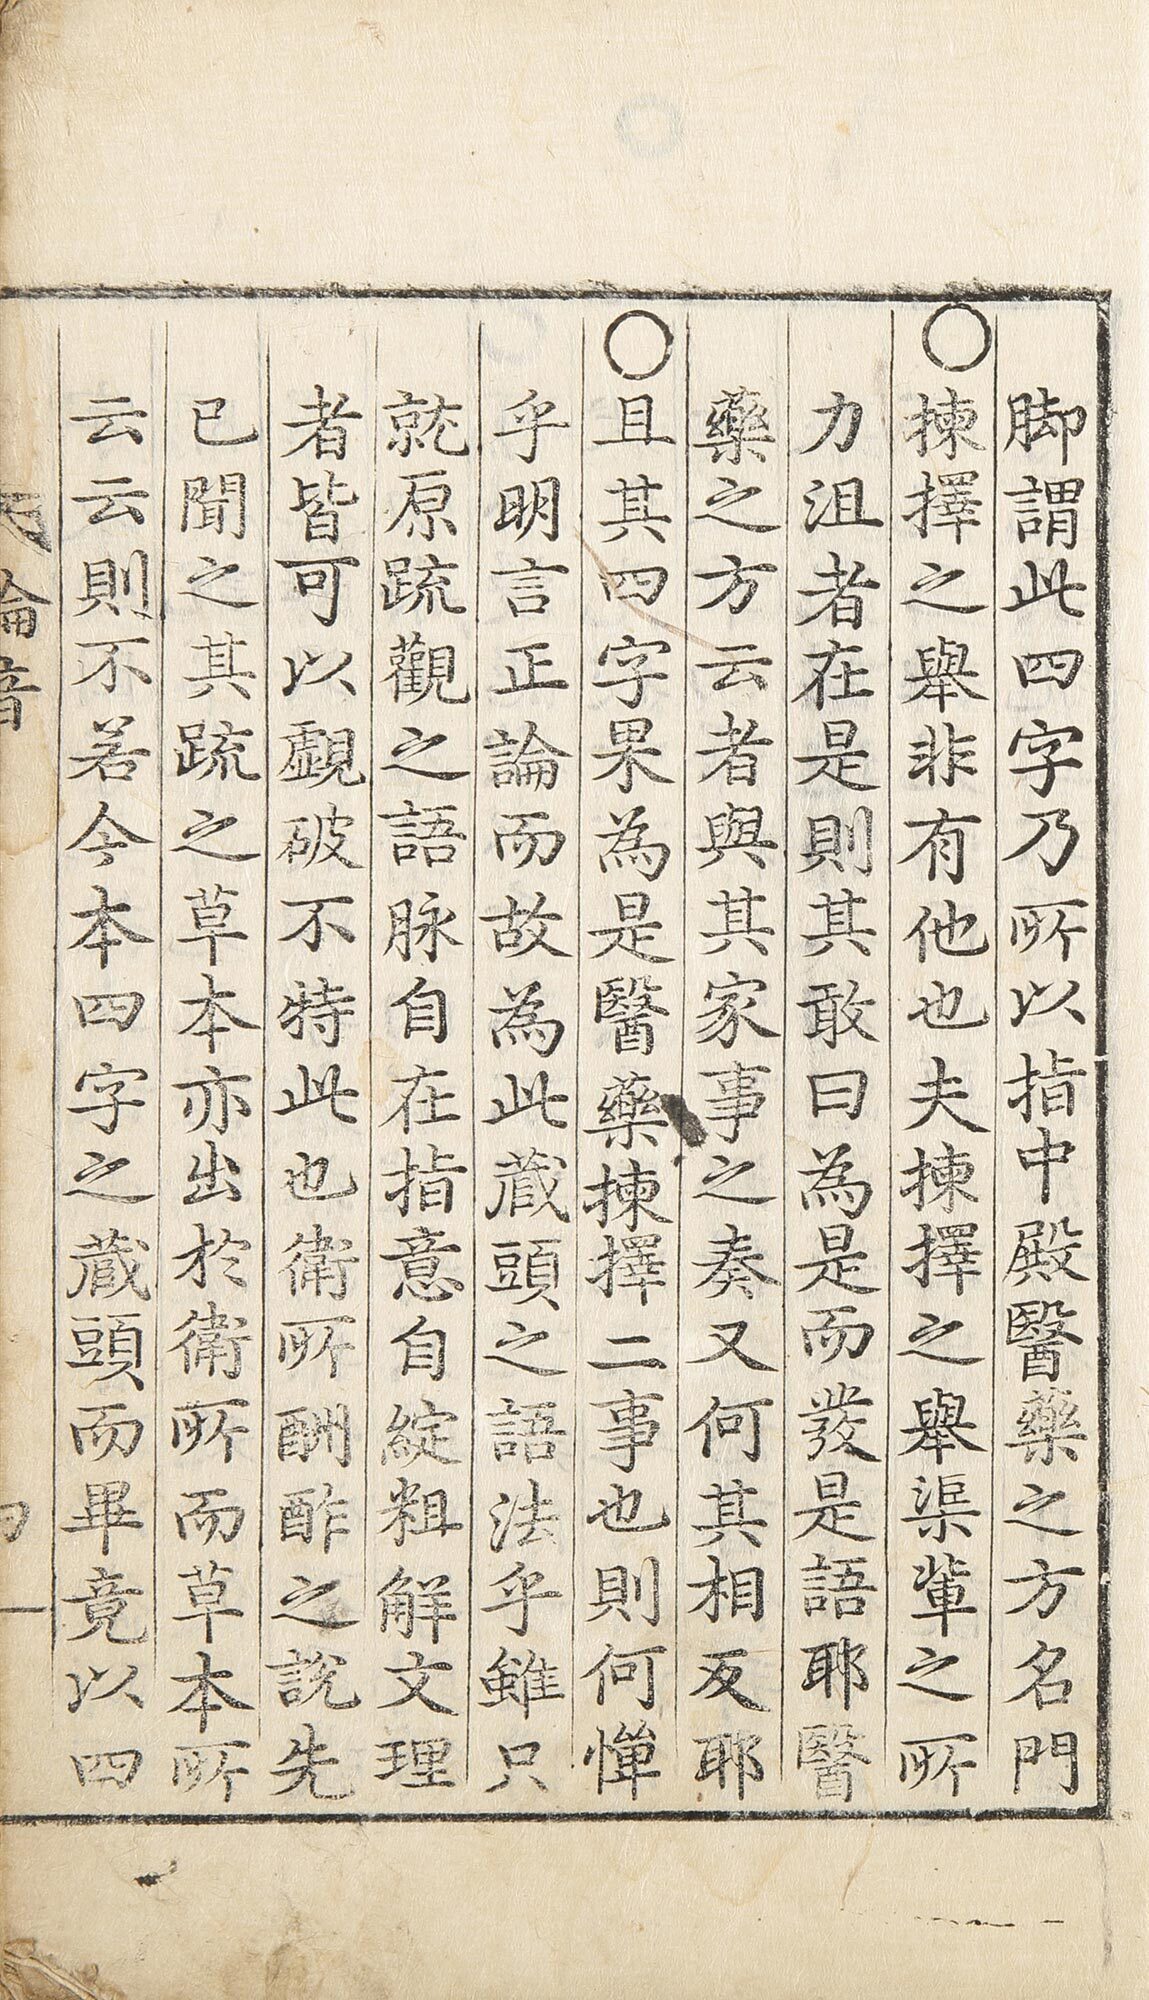 脚謂此四字乃所以指中殿醫藥之方名門
○揀擇之擧非有他也夫揀擇之擧渠輩之所
力沮者在是則其敢曰為是而發是語耶醫
藥之方云者與其家事之奏又何其相反耶
○且其四字果為是醫藥揀擇二事也則何憚
乎明言正論而故為此蔵頭之語法乎雖只
就原疏觀之語脉自在指意自綻粗解文理
者皆可以覰破不特此也衛所酬酢之說先
已聞之其疏之草本亦出於衛所而草本所
云云則不若今本四字之蔵頭而畢竟以四
綸音